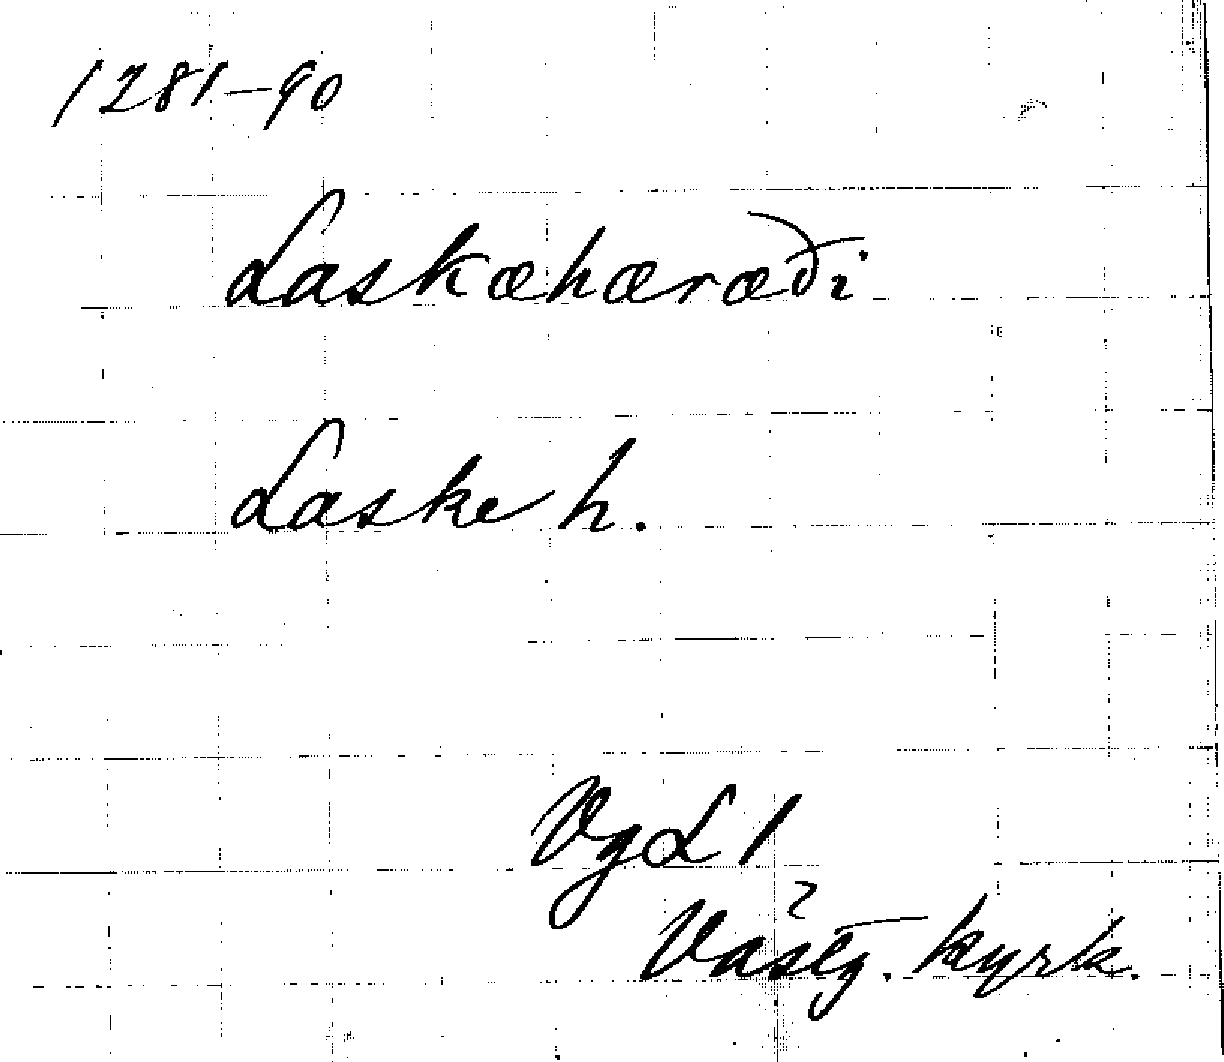 1281-90
Laskæhæræði
Laske h.
VgL 1
Västg. kyrk.